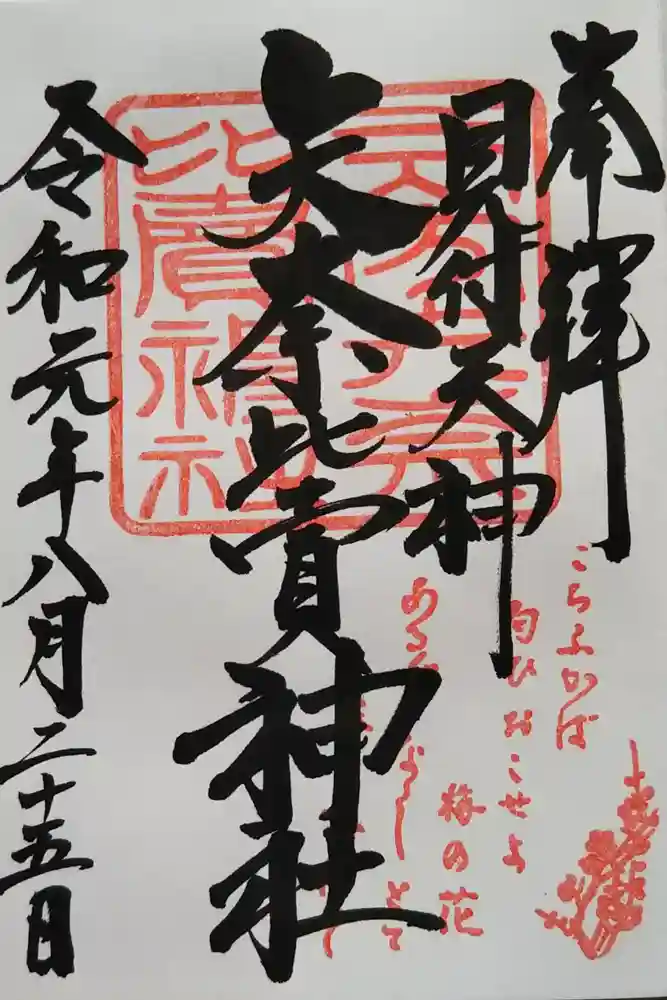 奉拜
見付天神
矢奈比賣神社
令和元年八月二十五日
こちふかば
匂ひおこせよ
梅の花
あるじなしとて